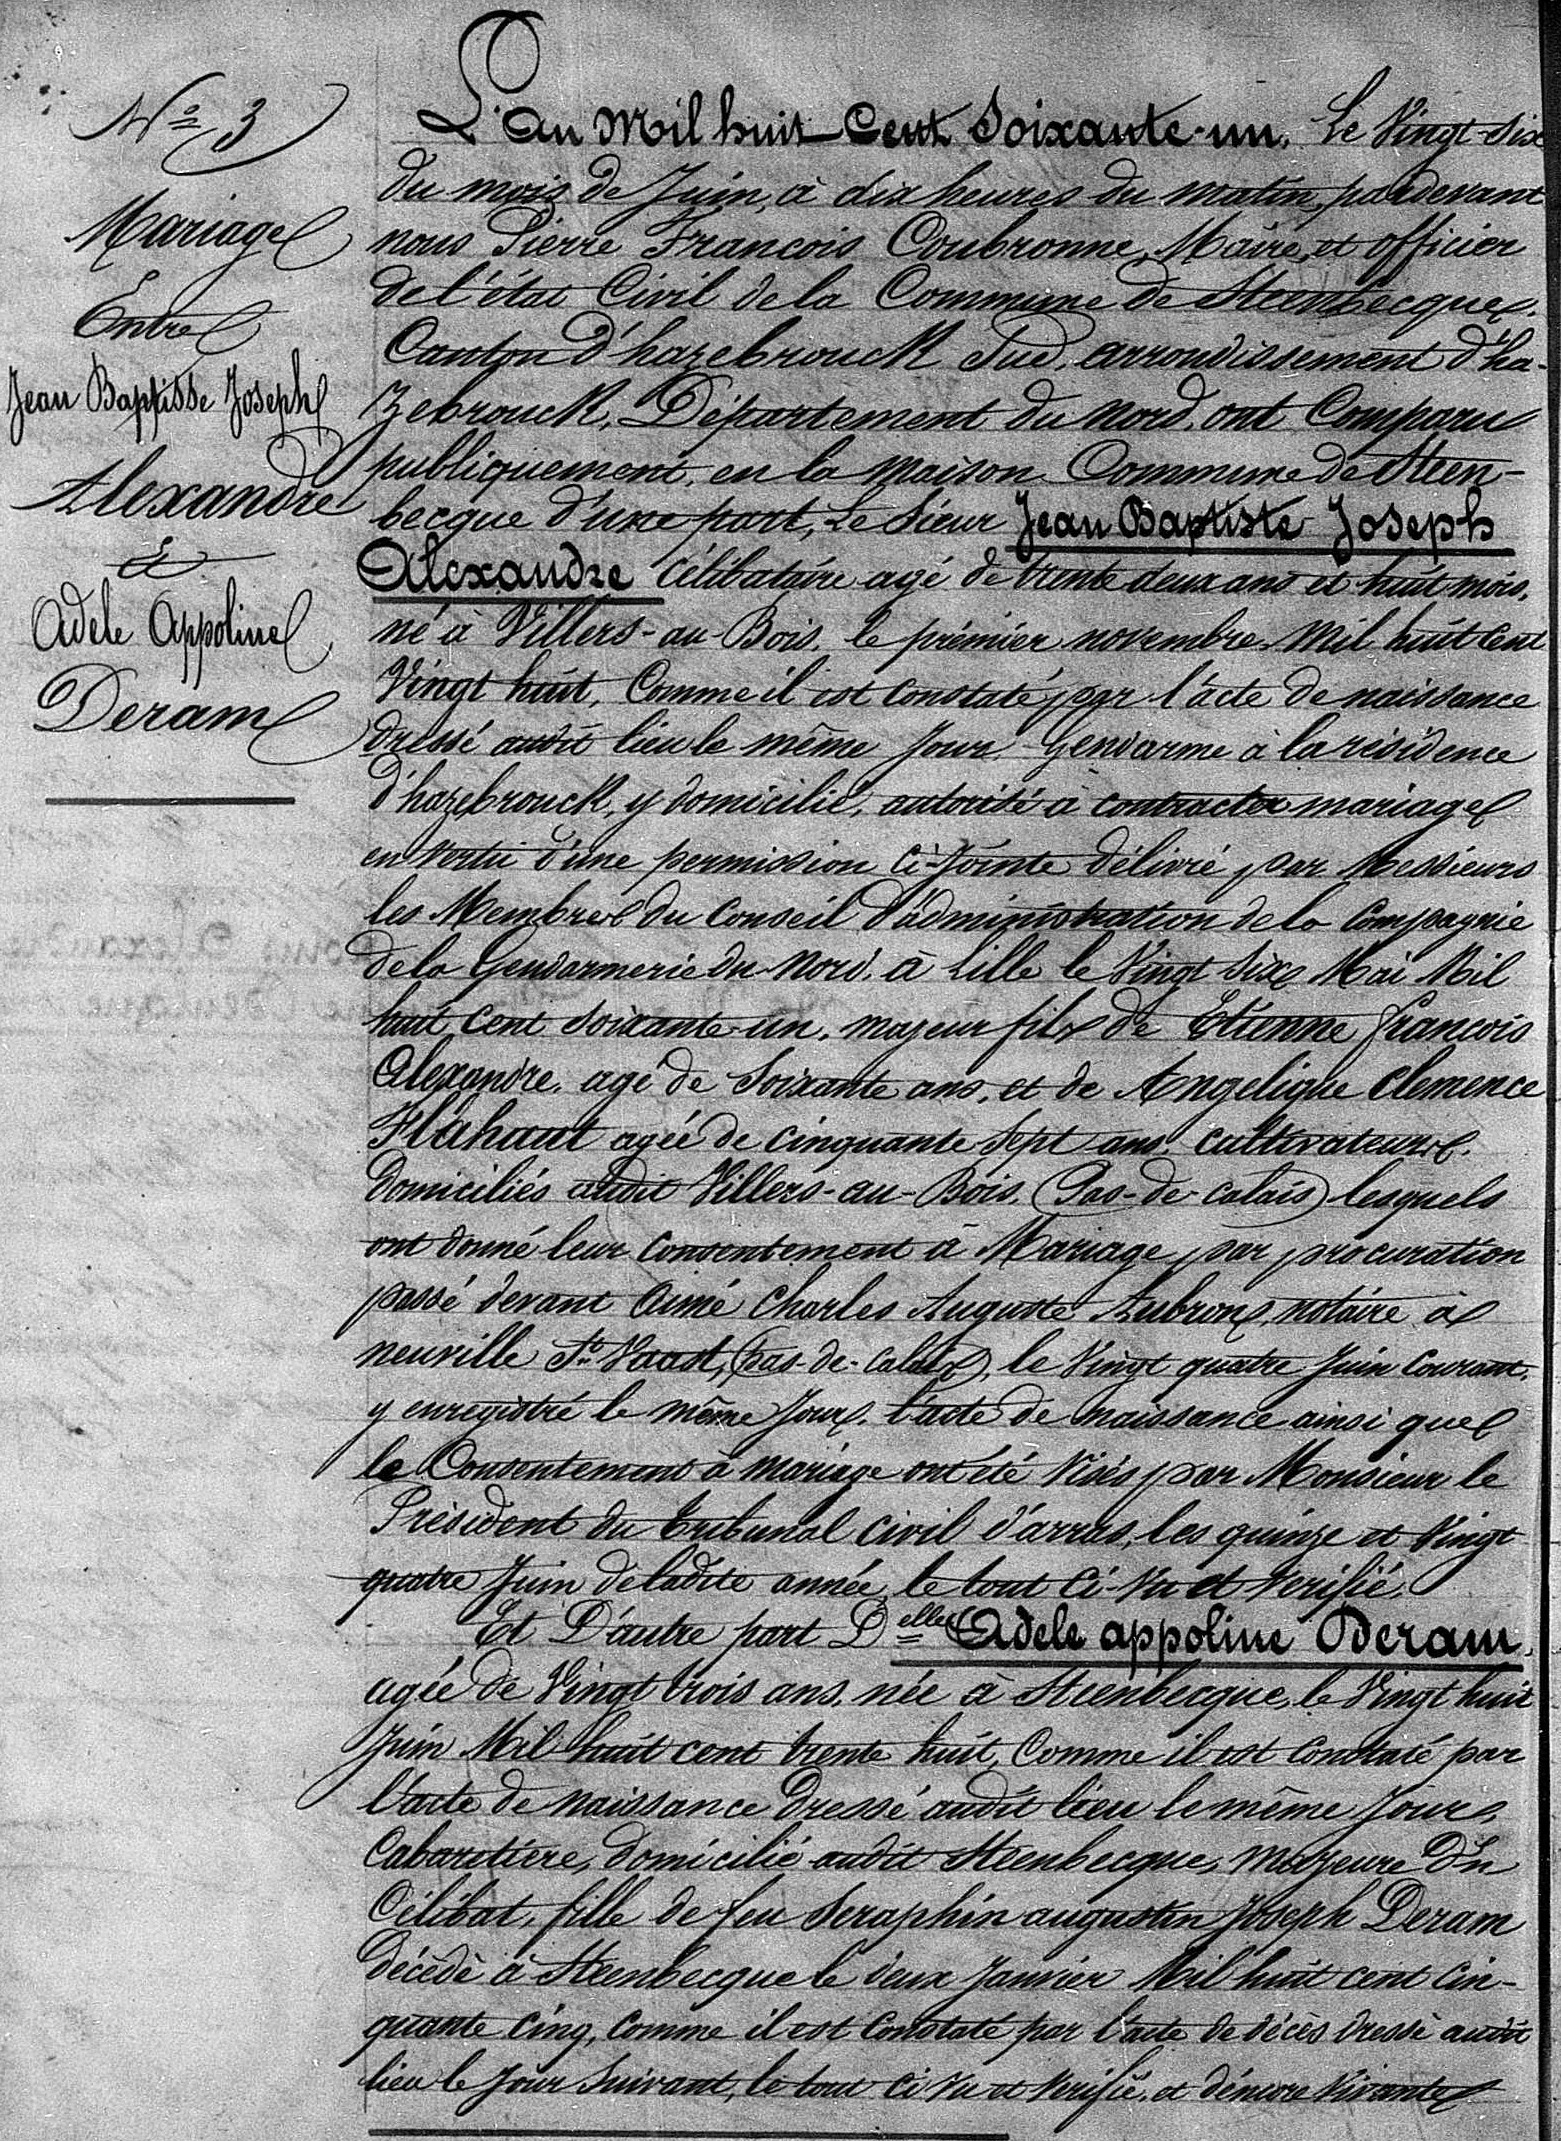 N° 3
Mariage
Entre
Jean Baptisse Joseph
Alexandre
Et
Adele Appoline
Deram
L'an Mil huit Cent Soixante-un, Le Vingt-six
du mois de Juin, à dix heures du matin, pardevant
nous Pierre François Coubronne, Maire, et officier
de l'état Civil de la Commune de Steenbecque,
Canton d'hazebrouck Sud, arrondissement d'ha-
zebrouck, Département du Nord, ont Comparu
publiquement, en la maison Commune de Steen-
becque d'une part, Le Sieur Jean Baptiste Joseph
Alexandre célibataire agé de trente deux ans et huit mois,
né à Villers-au-Bois, le prémier novembre Mil huit Cent
Vingt huit, Comme il est Constaté par l'acte de naissance
dressé audit lieu le même Jour, Gendarme à la résidence
d'hazebrouck, y domicilié, autorisé à contracter mariage
en vertu d'une permission Ci-Jointe délivré par Messieurs
les Membres du Conseil d'administration de la Compagnie
de la Gendarmerie du Nord, à Lille le Vingt Six Mai Mil
huit Cent soixante-un, majeur fils de Etienne François
Alexandre, agé de Soixante ans, et de Angelique Clemence
Flahaut agée de Cinquante Sept ans, cultivateurs,
domiciliés audit Villers-au-Bois, (Pas-de-Calais) lesquels
ont donné leur Consentement à Mariage par procuration
passé devant Aimé Charles Auguste Lubrons, notaire à
neuville St Vaast, (pas-de-Calais), le Vingt quatre Juin Courant,
y enregistré le même Jour, l'acte de naissance ainsi que
le Consentement à mariage ont été Visés par Monsieur le
Président du tribunal Civil d'arras, les quinze et Vingt
quatre Juin de ladite année, le tout Ci-Vu et Verifié,
Et D'autre part Delle Adele appoline Deram,
agée de Vingt trois ans, née à Steenbecque, le Vingt huit
Juin Mil huit cent trente huit, Comme il est Constaté par
l'acte de naissance Dressé audit lieu le même Jour,
Cabaretière, domicilié audit Steenbecque, Majeure En
Célibat, fille de feu Seraphin augustin Joseph Deram
décédé à Steenbecque le deux Janvier Mil huit cent Cin-
quante Cinq, Comme il est Constaté par l'acte de décès dressé audit
lieu le Jour Suivant, le tout Ci Vu et Verifié, et d'encore Vivante